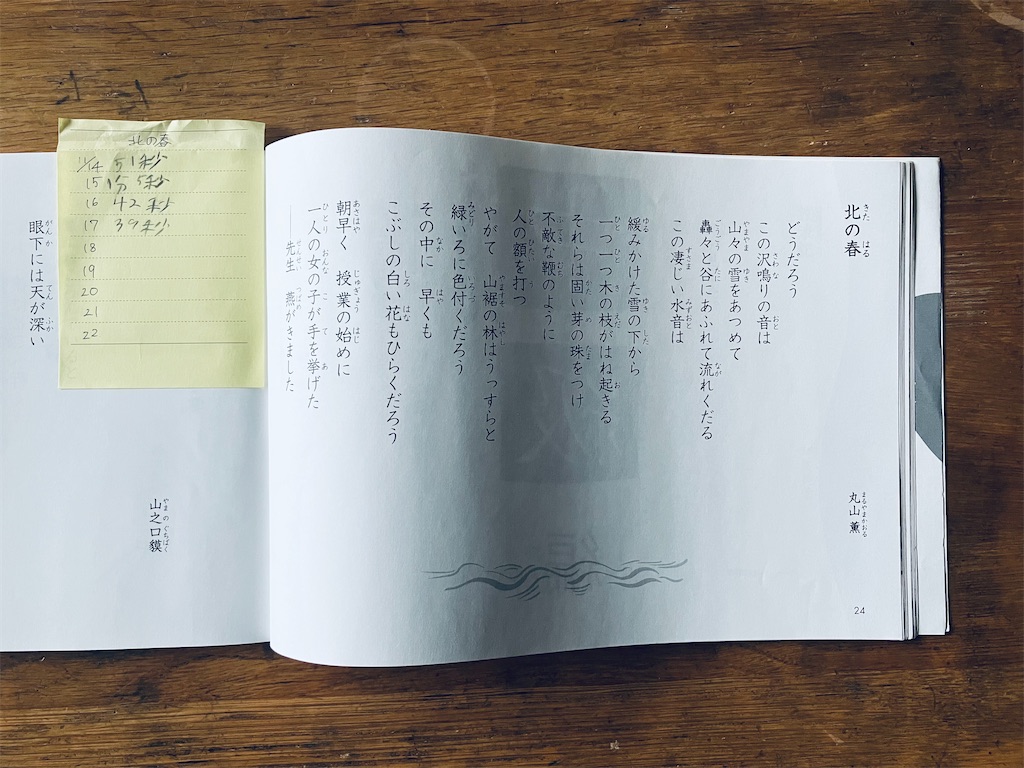 北の春
丸山薫
どうだろう
この沢鳴りの音は
山々の雪をあつめて
轟々と谷にあふれて流れくだる
この凄じい水音は
緩みかけた雪の下から
一つ一つ木の枝がはね起きる
それらは固い芽の珠をつけ
不敵な鞭のように
人の額を打つ
やがて 山裾の林はうっすらと
緑いろに色付くだろう
その中に 早くも
こぶしの白い花もひらくだろう
朝早く 授業の始めに
一人の女の子が手を挙げた
――先生 燕がきました
24
北の春
11/14 51秒
15 1分5秒
16 42秒
17 39秒
18
19
20
21
22
山之口貘
眼下には天が深い